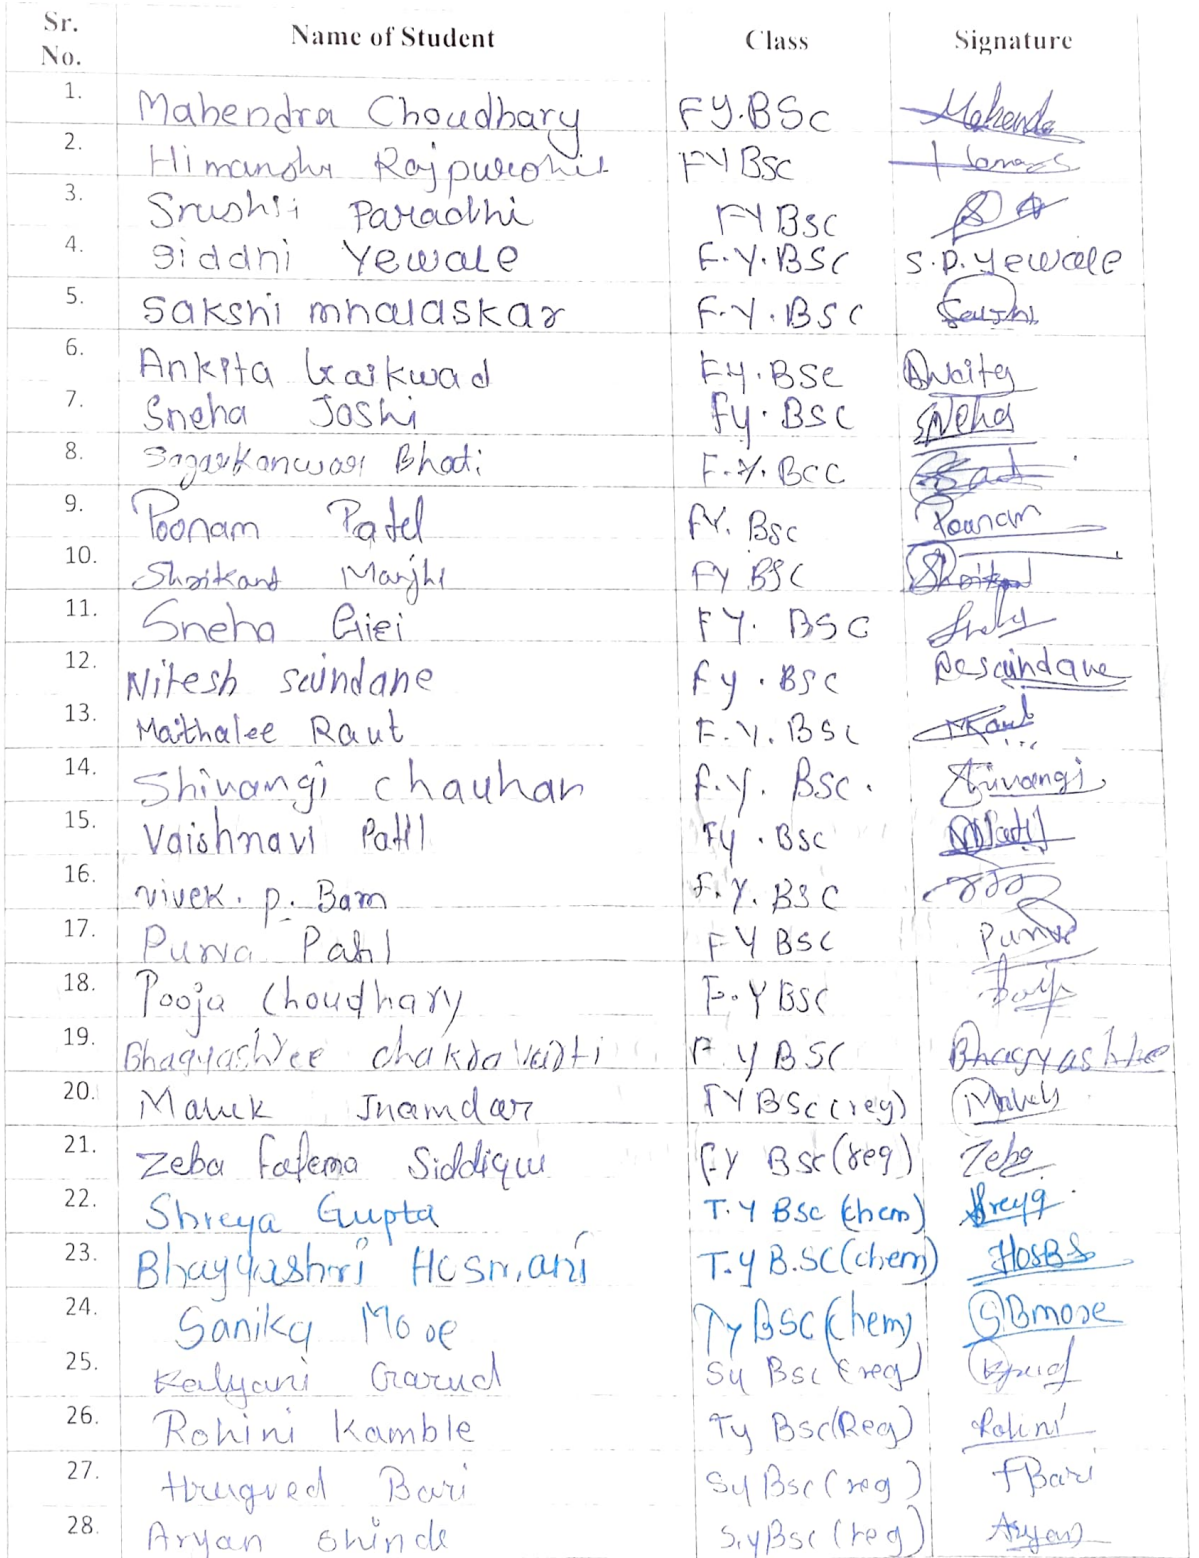 Sr. No. Name of Student Class Signature
1. Mahendra Choudhary FY.BSc Mahendra
2. Himanshu Rajpurohit FY BSc
3. Srushti Paradhi FY BSc
4. Siddhi Yewale F.Y.BSc S.P.Yewale
5. Sakshi mhalaskar F.Y.BSC Sakshi
6. Ankita Gaikwad FY.BSc Ankita
7. Sneha Joshi Fy.BSC Sneha
8. Sagarkanwar Bhati F.Y.BCC
9. Poonam Patel FY.Bsc Poonam
10. Shrikant Manjhi FY BSC Shrikant
11. Sneha Giri FY. BSC Sneha
12. Nitesh saindane Fy.BSC Nesaindane
13. Maithalee Raut F.Y.BSC MRaut
14. Shivangi chauhan F.Y. BSC. Shivangi
15. Vaishnavi Patil Fy.BSC
16. vivek.p.Bam F.Y.BSC
17. Purva Patil FY BSC Purva
18. Pooja Choudhary F.Y BSC
19. Bhagyashree chakravarti F.Y BSC Bhagyashree
20. Mahek Inamdar TY BSc (reg) Mahek
21. Zeba Fatema Siddiqui FY BSc (reg) Zeba
22. Shreya Gupta T.Y BSC (chem) Shreya
23. Bhagyashri Hosmani T.Y B.SC (chem) HosBS
24. Sanika More Ty BSC (chem) SBmore
25. Kalyani Garud Sy Bsc (reg)
26. Rohini Kamble Ty Bsc (Reg) Rohini
27. Hrugved Bari Sy Bsc (reg) HBari
28. Aryan Shinde S.y Bsc (reg) Aryan